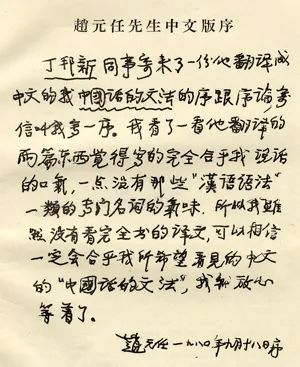 趙元任先生中文版序
丁邦新同事寄來了一份他翻譯成
中文的我中國話的文法的序跟序論來
信叫我寫一序。我看了一看他翻譯的
兩篇東西覺得寫的完全合乎我說話
的口氣，一点沒有那些“漢語語法”
一類的專门名詞的氣味．所以我雖
然沒有看完全书的译文，可以相信
一定会合乎我所希望看見的中文
的“中國話的文法”，我就放心
等着了。
趙元任 一九八〇年九月十八日序